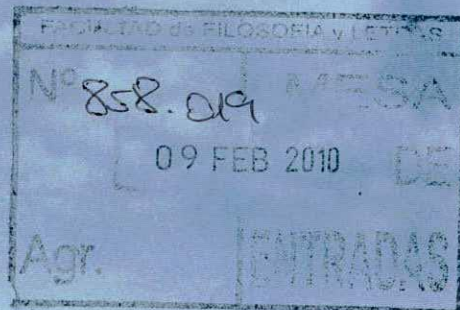 FACULTAD de FILOSOFIA y LETRAS
Nº 858.019 MESA
09 FEB 2010 DE
Agr. ENTRADAS